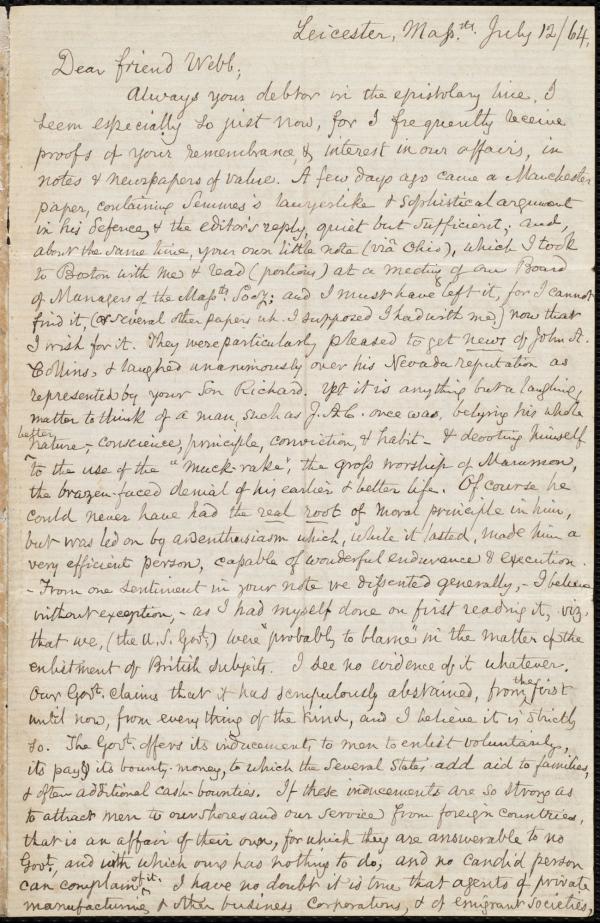 Leicester, Mass.ts. July 12/64.
Dear friend Webb;
Always your debtor in the epistolary line, I
seem especially so just now, for I frequently receive
proofs of your remembrance & interest in our affairs, in
notes & newspapers of value. A few days ago came a Manchester
paper, containing Semmes's lawyerlike & sophistical argument
in his defence, & the editor's reply, quiet but sufficient; and,
about the same time, your own little note (viâ Ohio), which I took
to Boston with me & read (portions) at a meeting of our Board
of Managers of the Mass.ts Socy; and I must have left it, for I cannot
find it, (or several other papers wh. I supposed I had with me,) now that
I wish for it. They were particularly pleased to get news of John A.
Collins, & laughed unanimously over his Nevada reputation as
represented by your Son Richard. Yet it is anything but a laughing
matter to think of a man, such as J.A.C. once was, belying his whole
better nature, - conscience, principle, conviction, & habit - & devoting himself
to the use of the "muck-rake", the gross worship of Mammon,
the brazen-faced denial of his earlier & better life. Of course he
could never have had the real root of moral principle in him,
but was led on by an enthusiasm which, while it lasted, made him a
very efficient person, capable of wonderful endurance & execution.
- From one sentiment in your note we dissented generally, - I believe
without exception, - as I had myself done on first reading it, viz.
that we, (the U.S. Govt.) were "probably to blame" in the matter of the
enlistment of British subjects. I see no evidence of it whatever.
Our Govt. claims that it has scrupulously abstained, from the first
until now, from every thing of the kind, and I believe it is strictly
so. The Govt. offers its inducements to men to enlist voluntarily,
its pay & its bounty-money, to which the several States add aid to families,
& often additional cash-bounties. If these inducements are so strong as
to attract men to our shores and our service from foreign countries,
that is an affair of their own, for which they are answerable to no
Govt., and with which ours has nothing to do, and no candid person
can complain of it. I have no doubt it is true that agents of private
manufacturing & other business corporations, & of emigrant societies,